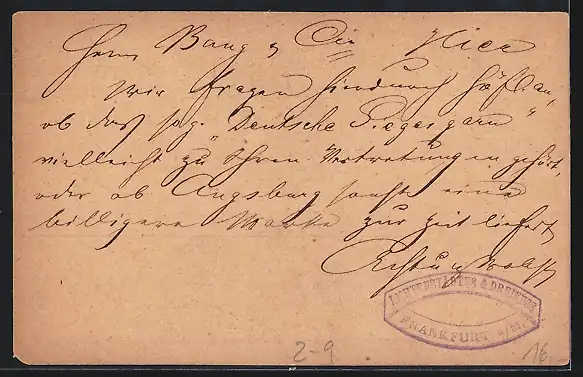 Herrn Bang & Cie Hier
Wir fragen hierdurch höfl. an,
ob das sog. „Deutsche Siegesgarn“
vielleicht zu Ihren Vertretungen gehört,
oder ob Augsburg sonst eine
billigere Marke zur Zeit liefert
Achtungsvollst
& DREIFUSS
FRANKFURT a/M.
2-9
16,-